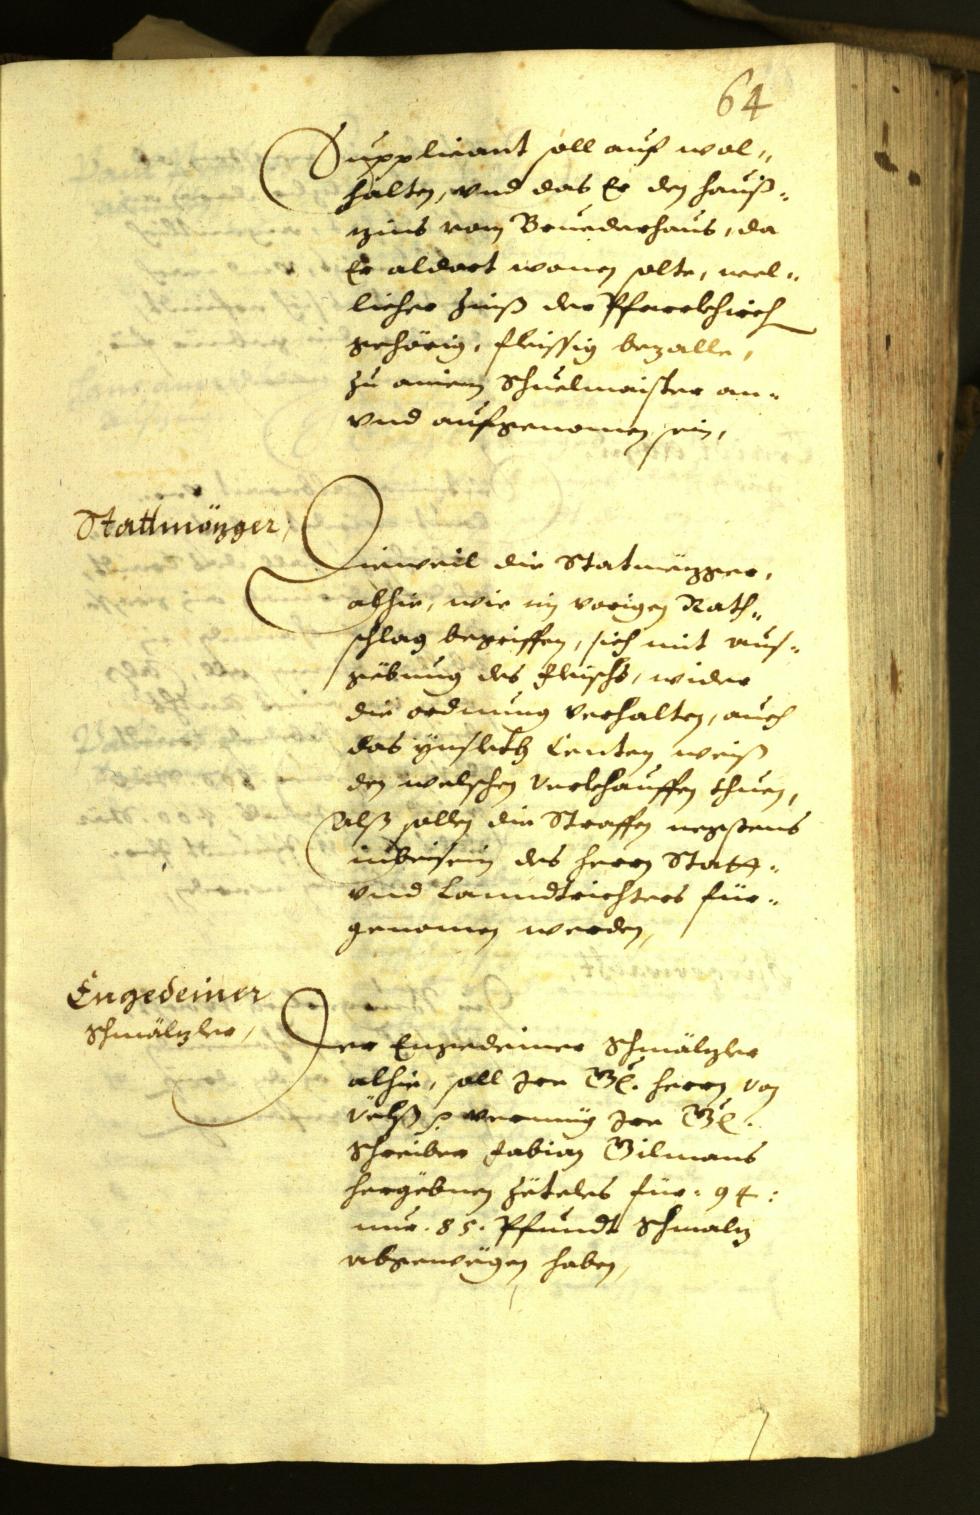 64
Supplicant soll auf wol„
halten, vnd das Er den hauß„
zins vom Bruederhaus, da
Er aldort wonen solte, wel„
licher Zinß der Pfarrkhirch
gehörig, fleissig bezalle,
zu ainem Schuelmaister an„
vnd aufgenomen sein,
Statmözger,
Dieweil die Statmezger,
alhie, wie im vorigen Rath„
schlag begriffen, sich mit aus„
gebung des fleischs, wider
die ordnung verhalten, auch
das ynslith Centen weiß
den welschen verkhauffen thuen,
Alß sollen die Straffen negstens
in beisein des herrn Statt„
vnd Lanndtrichters für„
genomen werden,
Engedeiner
Schmälzler,
Der Engedeiner Schmälzler
alhie, soll Irr Gl. herrn von
Velß vermüg Irr Gl.
Schreiber Fabian Gilmans
hergebnen Zetels für 94:
nur 85. Pfundt Schmalz
abgewegen haben,